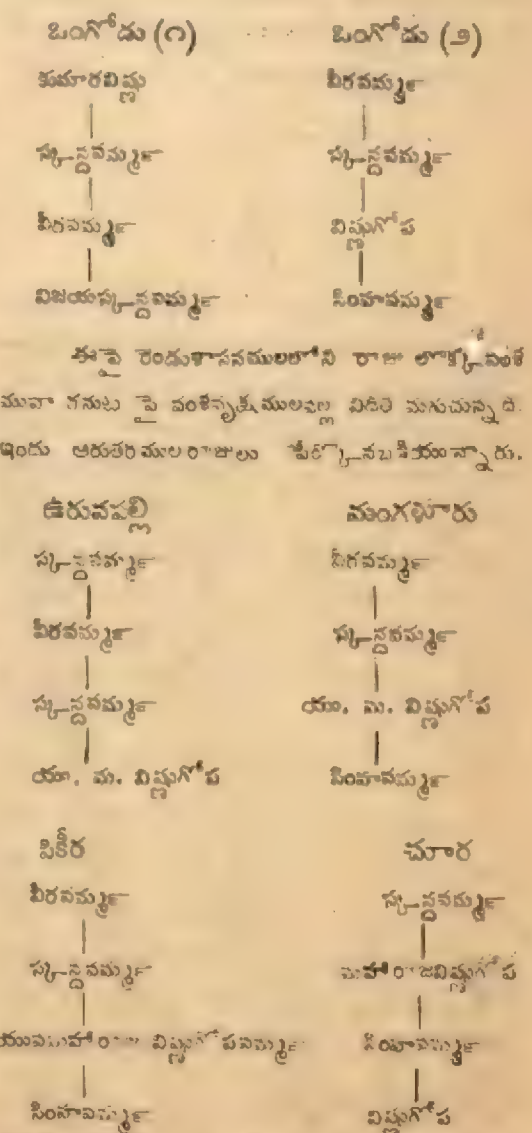 ఒంగోడు (౧)
కుమారవిష్ణు
స్కన్దవర్మ్మ
వీరవర్మ్మ
విజయస్కన్దవర్మ్మ
ఒంగోడు (౨)
వీరవర్మ్మ
స్కన్దవర్మ్మ
విష్ణుగోప
సింహవర్మ్మ
ఈ పై రెండుశాసనములలోని రాజు లొక్కవంశ
మువా రనుట పై వంశవృక్షములవల్ల విదిత మగుచున్నది.
ఇందు ఆరుతరములరాజులు పేర్కొనబడియున్నారు.
ఉరువపల్లి
స్కన్దవర్మ్మ
వీరవర్మ్మ
స్కన్దవర్మ్మ
యు. మ. విష్ణుగోప
మంగళూరు
వీరవర్మ్మ
స్కన్దవర్మ్మ
యు. మ. విష్ణుగోప
సింహవర్మ్మ
పికీర
వీరవర్మ్మ
స్కన్దవర్మ్మ
యువమహారాజ విష్ణుగోపవర్మ్మ
సింహవర్మ్మ
చూర
స్కన్దవర్మ్మ
మహారాజవిష్ణుగోప
సింహవర్మ్మ
విష్ణుగోప